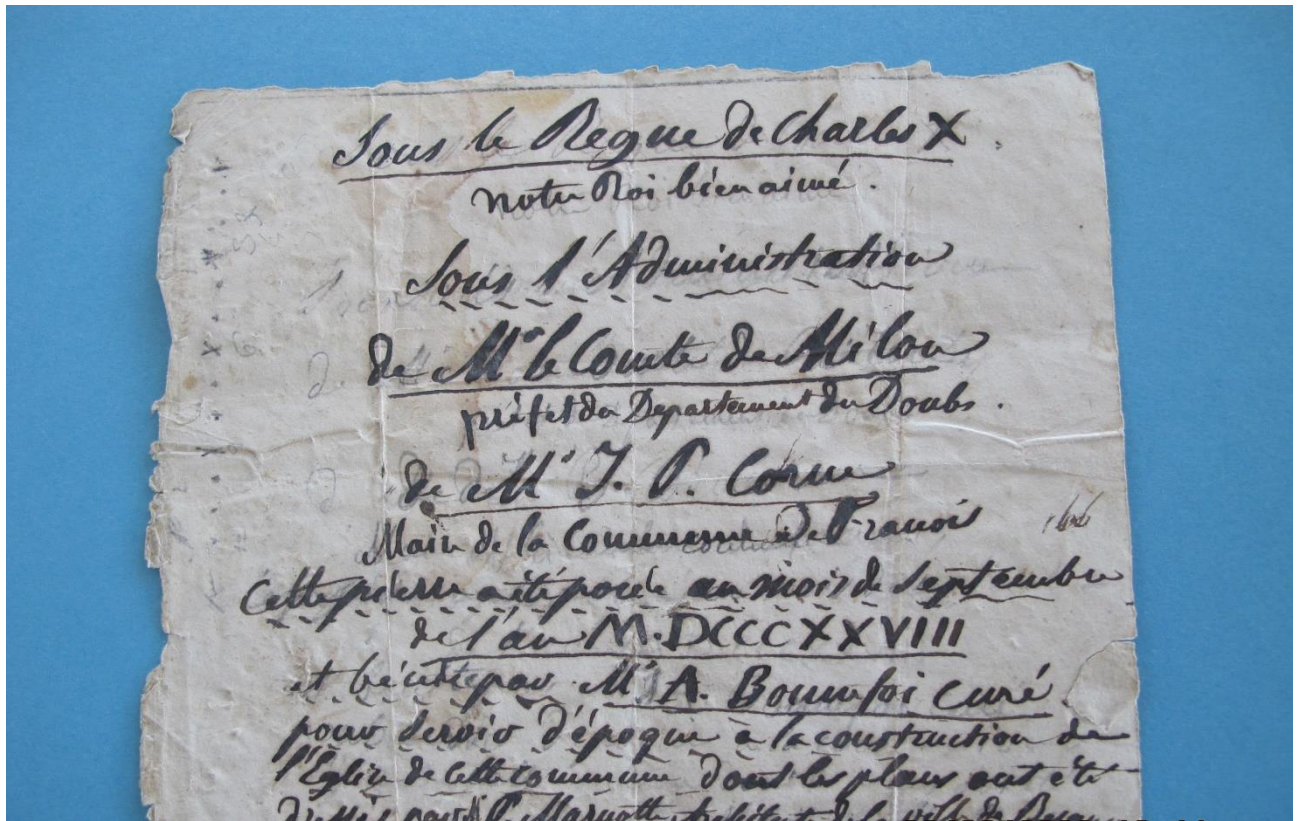 Sous le Regne de Charles X.
notre Roi bien aimé.
Sous l'Administration
de Mr le Comte de Milon
préfet du Departement du Doubs.
de Mr J. P. Corne
Maire de la Commune de Franois
Cette pierre a été posée au mois de Septembre
de l'an M.DCCCXXVIII
et bénite par Mr A. Bonnefoi curé
pour servir d'époque à la construction de
l'Eglise de cette commune dont les plans ont été
dressés par P. Marnotte Architecte de la ville de